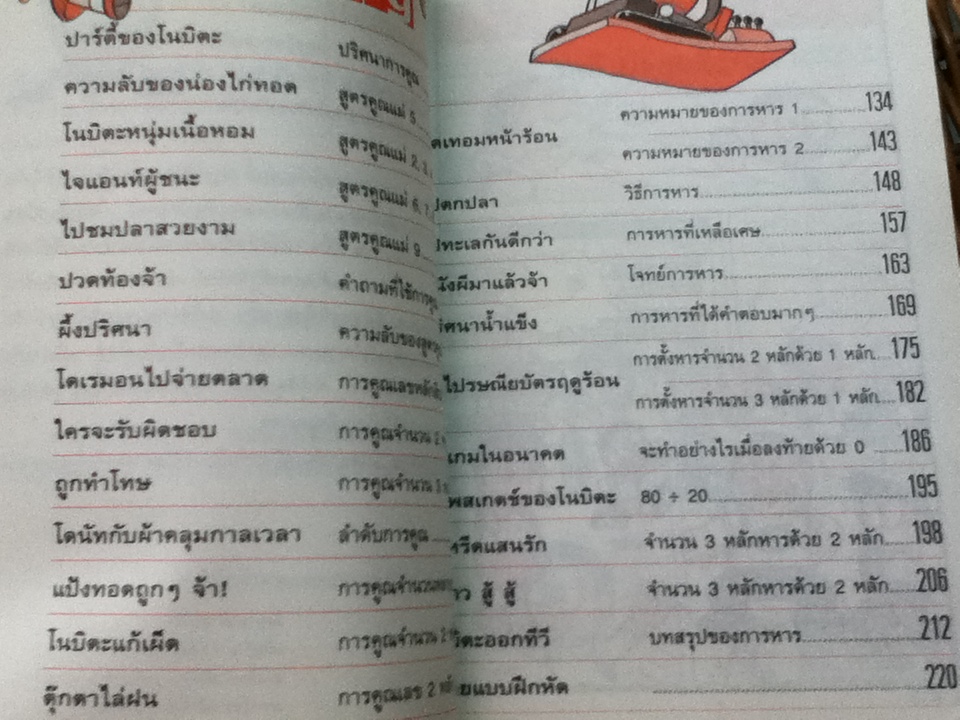 ปาร์ตี้ของโนบิตะ ปริศนาการคูณ
ความลับของน่องไก่ทอด สูตรคูณแม่ 5
โนบิตะหนุ่มเนื้อหอม สูตรคูณแม่ 2, 3,
ไจแอนท์ผู้ชนะ สูตรคูณแม่ 6, 7,
ไปชมปลาสวยงาม สูตรคูณแม่ 9
ปวดท้องจ้า คำถามที่ใช้การคูณ
ผึ้งปริศนา ความลับของสูตร
โดเรมอนไปจ่ายตลาด การคูณเลขหลัก
ใครจะรับผิดชอบ การคูณจำนวน
ถูกทำโทษ การคูณจำนวน
โดนัทกับผ้าคลุมกาลเวลา ลำดับการคูณ
แป้งทอดถูกๆ จ้า! การคูณจำนวน
โนบิตะแก้เผ็ด การคูณจำนวน 2
ตุ๊กตาไล่ฝน การคูณเลข 2
ความหมายของการหาร 1 134
ดเทอมหน้าร้อน
ความหมายของการหาร 2 143
ตกปลา วิธีการหาร 148
ทะเลกันดีกว่า การหารที่เหลือเศษ 157
ังผีมาแล้วจ้า โจทย์การหาร 163
ศนาน้ำแข็ง การหารที่ได้คำตอบมากๆ 169
การตั้งหารจำนวน 2 หลักด้วย 1 หลัก 175
ไปรษณียบัตรฤดูร้อน
การตั้งหารจำนวน 3 หลักด้วย 1 หลัก 182
เกมในอนาคต จะทำอย่างไรเมื่อลงท้ายด้วย 0 186
พสเกตช์ของโนบิตะ 80 ÷ 20 195
รีดแสนรัก จำนวน 3 หลักหารด้วย 2 หลัก 198
าว สู้ สู้ จำนวน 3 หลักหารด้วย 2 หลัก 206
ิตะออกทีวี บทสรุปของการหาร 212
ยแบบฝึกหัด 220